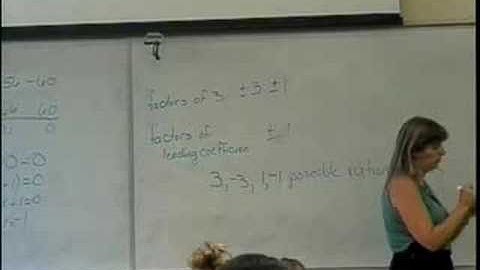 56 -60
60
0
0 = 0
+1) = 0
x+1=0
= -1
factors of 3 ±3 ±1
factors of ±1
leading coefficient
3, -3, 1, -1 possible